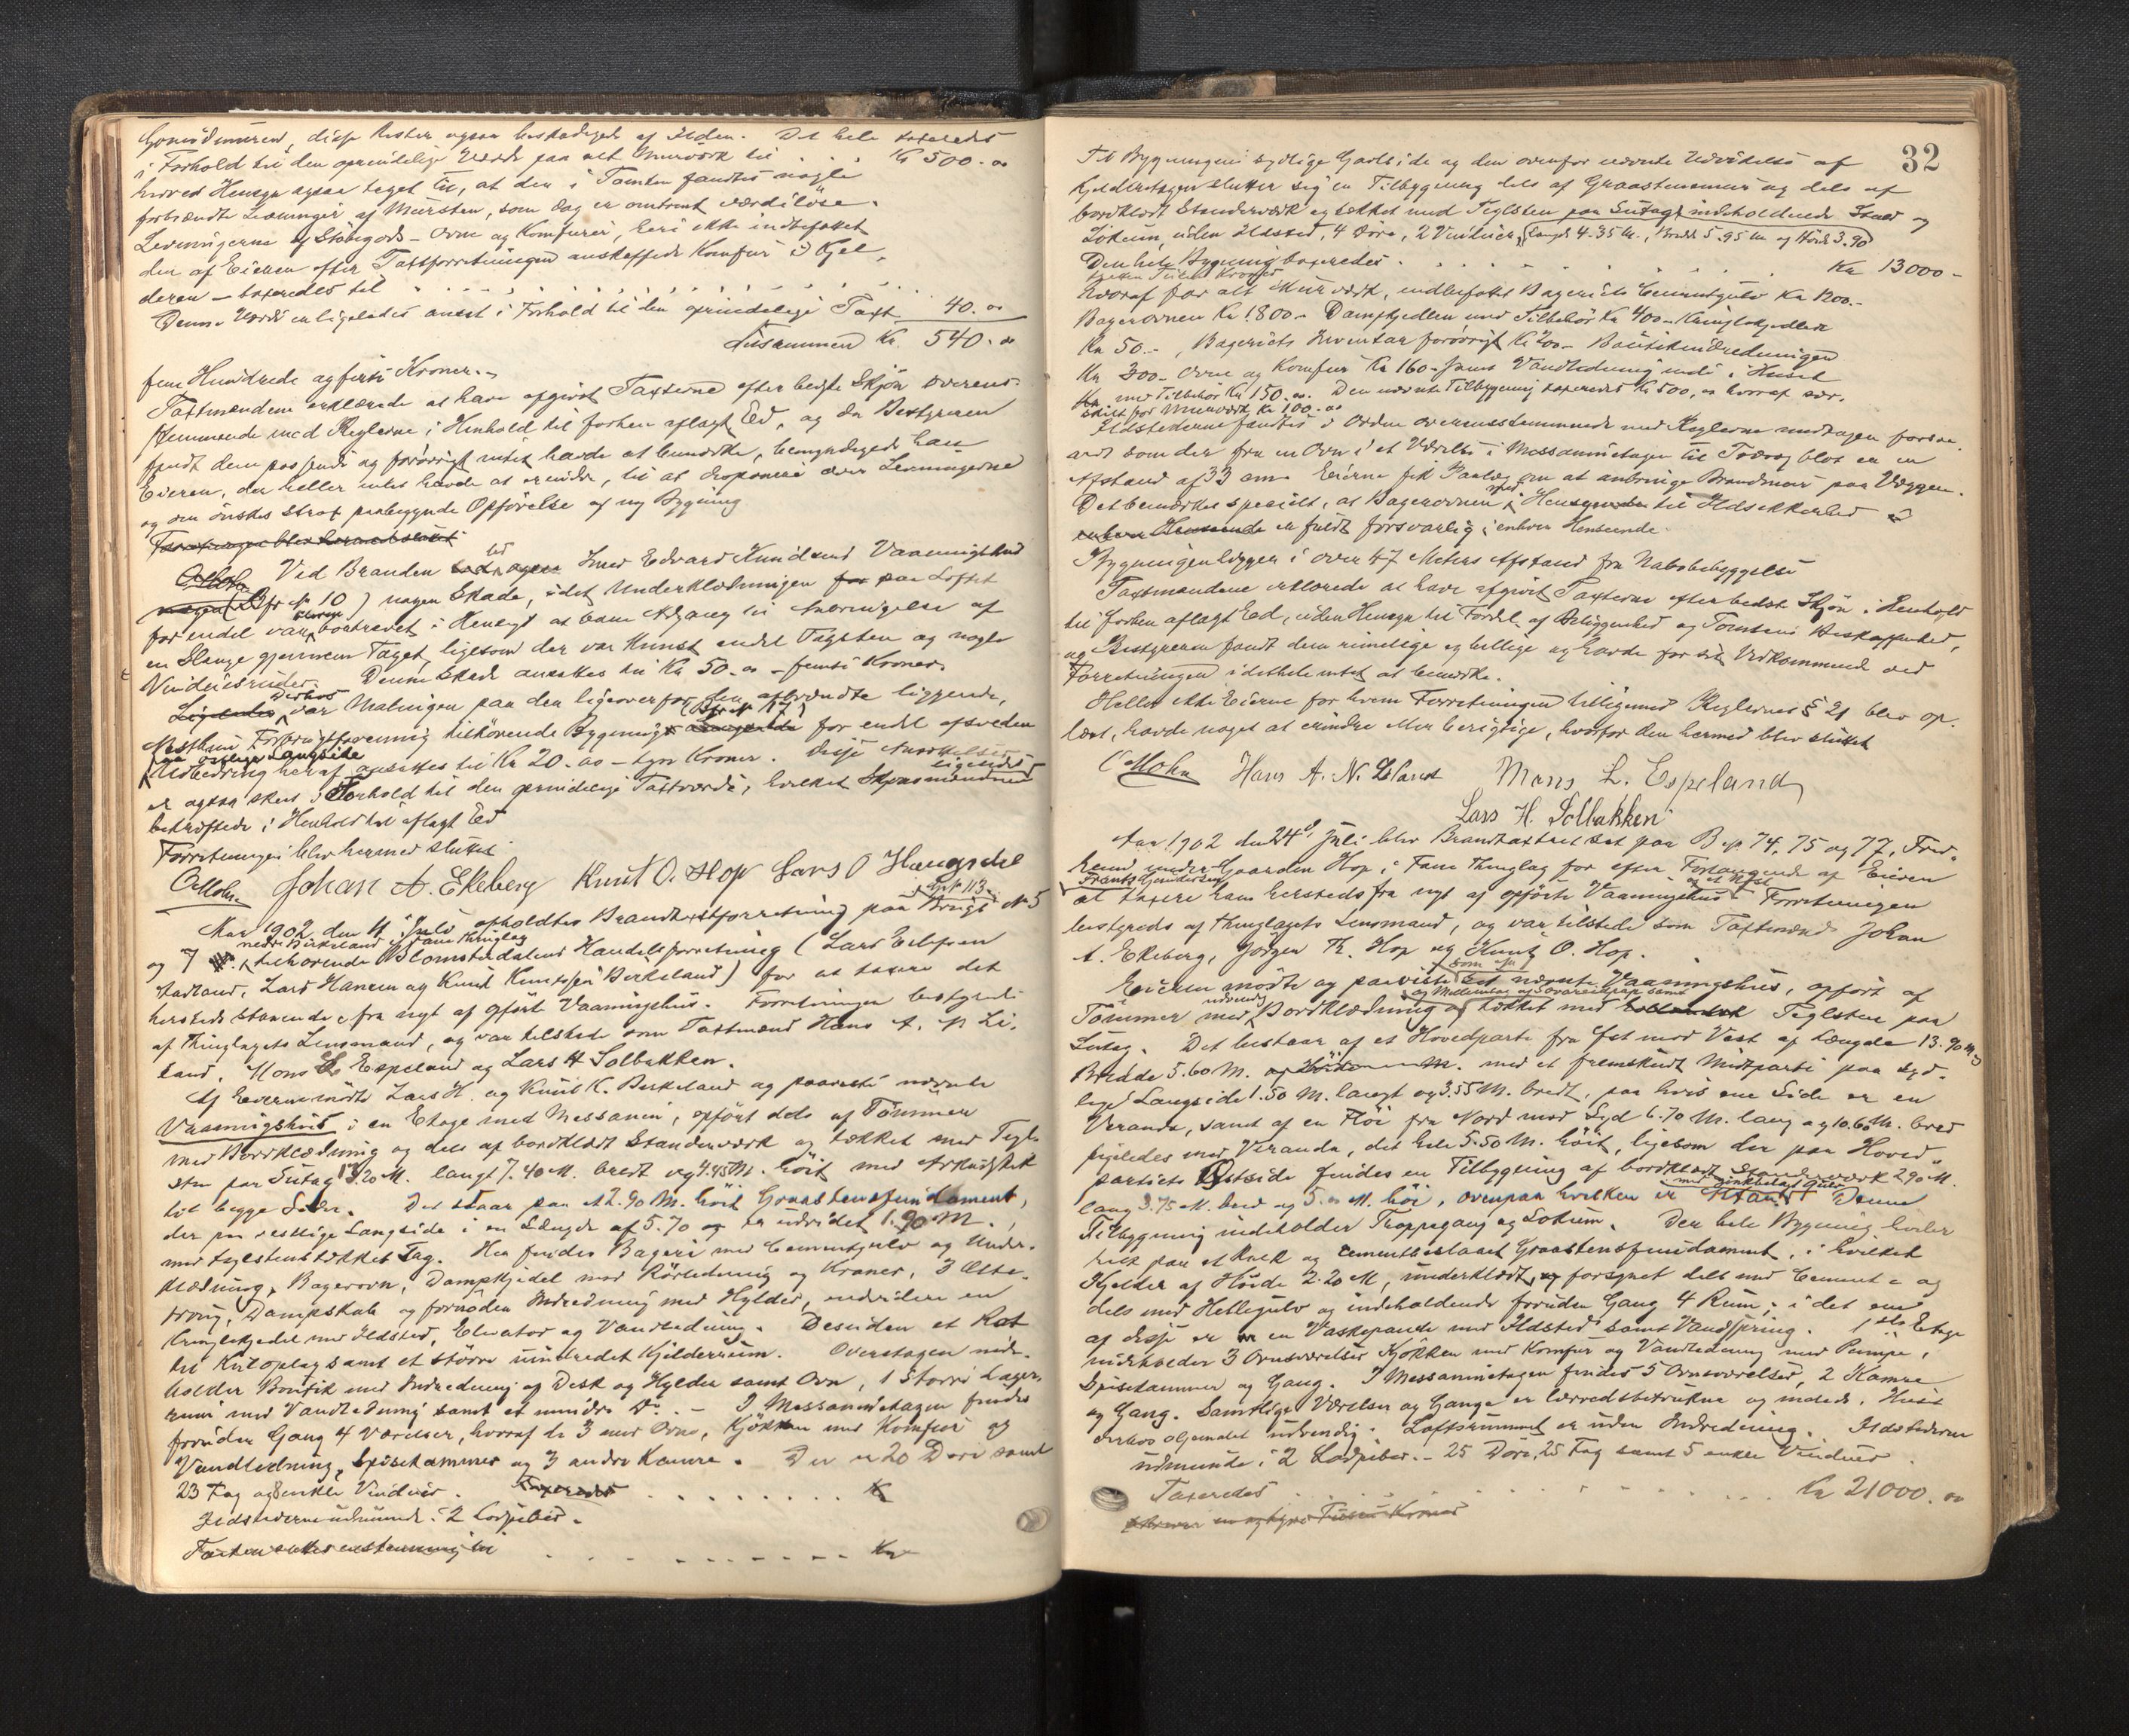 disse Rester ogsaa beskadiget af Ilden. Det hele taxeredes
i Forhold til den oprindelige Værdi paa alt Murværk til . . . Kr 500.00
hvorved Hensyn ogsaa toges til, at der i Tomten fandtes nogle
forbrændte Levninger af Mursten, som dog er omtrent værdiløse.
Levningerne af Støbegods - Ovne og Komfurer, heri ikke indbefattet
den af Eieren efter Taxtforretningen anskaffede Komfur i Kjel-
deren - taxeredes til . . . . . . . . . . . . . . . .
Denne Værdi er ligeledes ansat i Forhold til den oprindelige Taxt 40.00
Tilsammen Kr. 540.00
fem Hundrede og firti Kroner.
Taxtmændene erklærede at have afgivet Taxterne efter bedste Skjøn overens-
stemmende med Reglerne i Henhold til forhen aflagt Ed, og da Bestyreren
fandt dem passende og forøvrigt intet havde at bemærke, bemyndigede han
Eieren, der heller intet havde at erindre, til at disponere over Levningerne
og om ønskes strax paabegynde Opførelse af ny Bygning
Forretningen blev hermed sluttet
Ved Branden led Smed Edvard Knudsens Vaaningshus
(Bfr No 10) nogen Skade, idet Underklædningen paa Loftet
for endel var bortrevet i Hensigt at bane Adgang til Anbringelse af
en Slange gjennem Taget, ligesom der var Knust endel Tagsten og nogle
Vinduesruder. Denne Skade ansættes til Kr 50.00 - femti Kroner.
Derhos var Malingen paa den ligeoverfor den afbrændte liggende,
Nesttun Forbrugsforening tilhørende Bygnings (Bfr No 17) for endel afsveden
paa østlige Langside
Udbedring heraf ansættes til Kr 20.00 - tyve Kroner. Disse Ansættelser
er ogsaa skeet i Forhold til den oprindelige Taxtværdi, hvilket Skjønsmændene ligeledes
bekræftede i Henhold til aflagt Ed
Forretningen blev hermed sluttet
CMohn Johan A. Ekeberg Knut O. Hop Lars O Haugsdal
Aar 1902 den 4 Juli afholdtes Brandtaxtforretning paa Brugs No 5
og 7 nedre Birkeland i Fane Thinglag tilhørende Blomsterdalens Handelsforretning (Lars Ellefsen
Lars Hansen og Knud Knudsen Birkeland) for at taxere det
hersteds staaende fra nyt af opført Vaaningshus. Forretningen bestyredes
af Thinglagets Lensmand, og var tilstede som Taxtmænd Hans A. N Li-
land, Mons L Espeland og Lars H Solbakken.
Af Eierne mødte Lars H. og Knud K. Birkeland og paaviste nævnte
Vaaningshus i en Etage med Messanin, opført dels af Tømmer
med Bordklædning og dels af bordklædt Standerværk og tækket med Tegl-
sten paa Sutag 13.20 M. langt 7.40 M. bredt og 4.45 M. høit med Arkudstik
til begge Sider. Det staar paa et 2.90 M. høit Graastensfundament,
der paa vestlige Langside i en Længde af 5.70 er udvidet 1.90 M.,
med teglstenstækket Tag. Her findes Bageri med Cementgulv og Under-
klædning, Bagerovn, Dampkjedel med Rørledning og Kraner, 3 Ælte-
trong, Dampskab og fornøden Indredning med Hylder, endvidere en
Kringlekjedel med Ildsted, Elevator og Vandledning. Desuden et Rot
til Kuloplag samt et større uindredet Kjelderrum. Overetagen inde-
holder Boutik med Indredning af Desk og Hylder samt Ovn, 1 Større Lager-
rum med Vandledning samt et mindre Do. - I Messaninetagen findes
foruden Gang 4 Værelser, hvoraf de 3 med Ovne, Kjøkken med Komfur og
Vandledning, Spisekammer og 3 andre Kamre. Der er 20 Døre samt
23 Fag og enkle Vinduer. Taxeredes . . . . . . . . . Kr
Ildstederne udmunde i 2 Lodpiber.
Taxten sattes enstemmig til . . . . . . . . . Kr
32
Til Bygningens sydlige Gavlside og den ovenfor nævnte Udvidelse af
Kjelderetagen slutter sig en Tilbygning dels af Graastensmur og dels af
bordklædt Standerværk og tækket med Teglsten paa Sutag, indeholdende Stald og
Lokum, uden Ildsted, 4 Døre, 2 Vinduer, Længde 4.35 M., Bredde 5.95 M og Høide 3.90
Den hele Bygning taxeredes . . . . . . . . . . Kr 13000 -
tretten Tusend Kroner
hvoraf for alt Murværk, indbefattet Bageriets Cementgulv Kr 1200.-
Bagerovnen Kr 1800 - Dampkjedlen med Tilbehør Kr 400 - Kringlekjedlen
Kr 50.-, Bageriets Inventar forøvrigt Kr 200 - Boutikindredningen
Kr 300 - Ovne og Komfur Kr 160 - samt Vandledning inde i Huset
med Tilbehør Kr 150.00. Den nævnte Tilbygning taxeredes Kr 500,00 hvoraf sær-
skilt for Murværk Kr 100.00
Ildstederne fandtes i Orden overensstemmende med Reglerne undtagen forsaa-
vidt som der fra en Ovn i et Værelse i Messaninetagen til Trævæg blot er en
Afstand af 33 cm. Eierne fik Paalæg om at anbringe Brandmur paa Væggen.
Det bemærkes specielt, at Bagerovnen med Hensyn til Ildsikkerhed
er fuldt forsvarlig i enhver Henseende.
Bygningen ligger i over 47 Meters Afstand fra Nabobebyggelse
Taxtmændene erklærede at have afgivet Taxterne efter bedste Skjøn i Henhold
til forhen aflagt Ed, uden Hensyn til Fordel af Beliggenhed og Tomtens Beskaffenhed,
og Bestyreren fandt dem rimelige og billige og havde for sit Vedkommende ved
Forretningen i det hele intet at bemærke.
Heller ikke Eierne for hvem Forretningen i Tilligemed Reglernes § 21 blev op-
læst, havde noget at erindre eller berigtige, hvorfor den hermed blev sluttet
CMohn Hans A. N. Liland Mons L. Espeland
Lars H. Solbakken
Aar 1902 den 24de Juli blev Brandtaxt afholdt paa B No 74, 75 og 77, Fred-
under Gaarden Hop i Fane Thinglag for efter Forlangende af Eieren
Frants Gundersen at taxere hans hersteds fra nyt af opførte Vaaningshus. Forretningen
bestyredes af Thinglagets Lensmand, og var tilstede som Taxtmænd Johan
A. Ekeberg, Jørgen Th. Hop og Knut O. Hop.
Eieren mødte og paaviste det nævnte Vaaningshus, opført af
Tømmer med udvendig Bordklædning og tækket med Teglsten paa
Sutag. Det bestaar af et Hovedparti fra Øst mod Vest af Længde 13.90 M og
Bredde 5.60 M. med et fremskudt Midtparti paa syd-
lige Langside 1.50 M. langt og 3.55 M. bredt, paa hvis ene Side er en
Veranda, samt af en Fløi fra Nord mod Syd 6.70 M. lang og 10.60 M. bred
ligeledes med Veranda, det hele 5.50 M. høit, ligesom der paa Hoved-
partiets Østside findes en Tilbygning af bordklædt Standerværk 2.90 M.
lang 3.75 M. bred og 5.00 M. høi, ovenpaa hvilken er Altan. Denne
Tilbygning indeholder Trappegang og Lokum. Den hele Bygning hviler
helt paa et Kalk og cementbeslaaet Graastensfundament, i hvilket
Kjelder af Høide 2.20 M, underklædt, forsynet dels med Cement- og
dels med Hellegulv og indeholdende foruden Gang 4 Rum; i det ene
af disse er en Vaskepande med Ildsted samt Vandspring. 1ste Etage
indeholder 3 Ovnsværelser Kjøkken med Komfur og Vandledning med Pumpe,
Spisekammer og Gang. I Messaninetagen findes 5 Ovnsværelser, 2 Kamre
og Gang. Samtlige Værelser og Gange er lærredsbetrukne og malede. Huset
derhos oljemalet udvendig. Loftsrummet er uden Indredning. Ildstederne
udmunde i 2 Lodpiber. - 25 Døre, 25 Fag samt 5 enkle Vinduer.
Taxeredes . . . . . . . . . . . . . . . Kr 21000.00
en og tyve Tusen Kroner